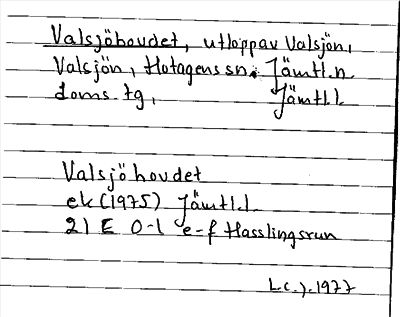 Valsjöhovdet, utlopp av Valsjön,
Valsjön, Hotagens sn. Jämtl.n
doms.tg, Jämtl.l
Valsjöhovdet
ek (1975) Jämtl.l
21 E 0-1 e-f Hasslingsrun
1977